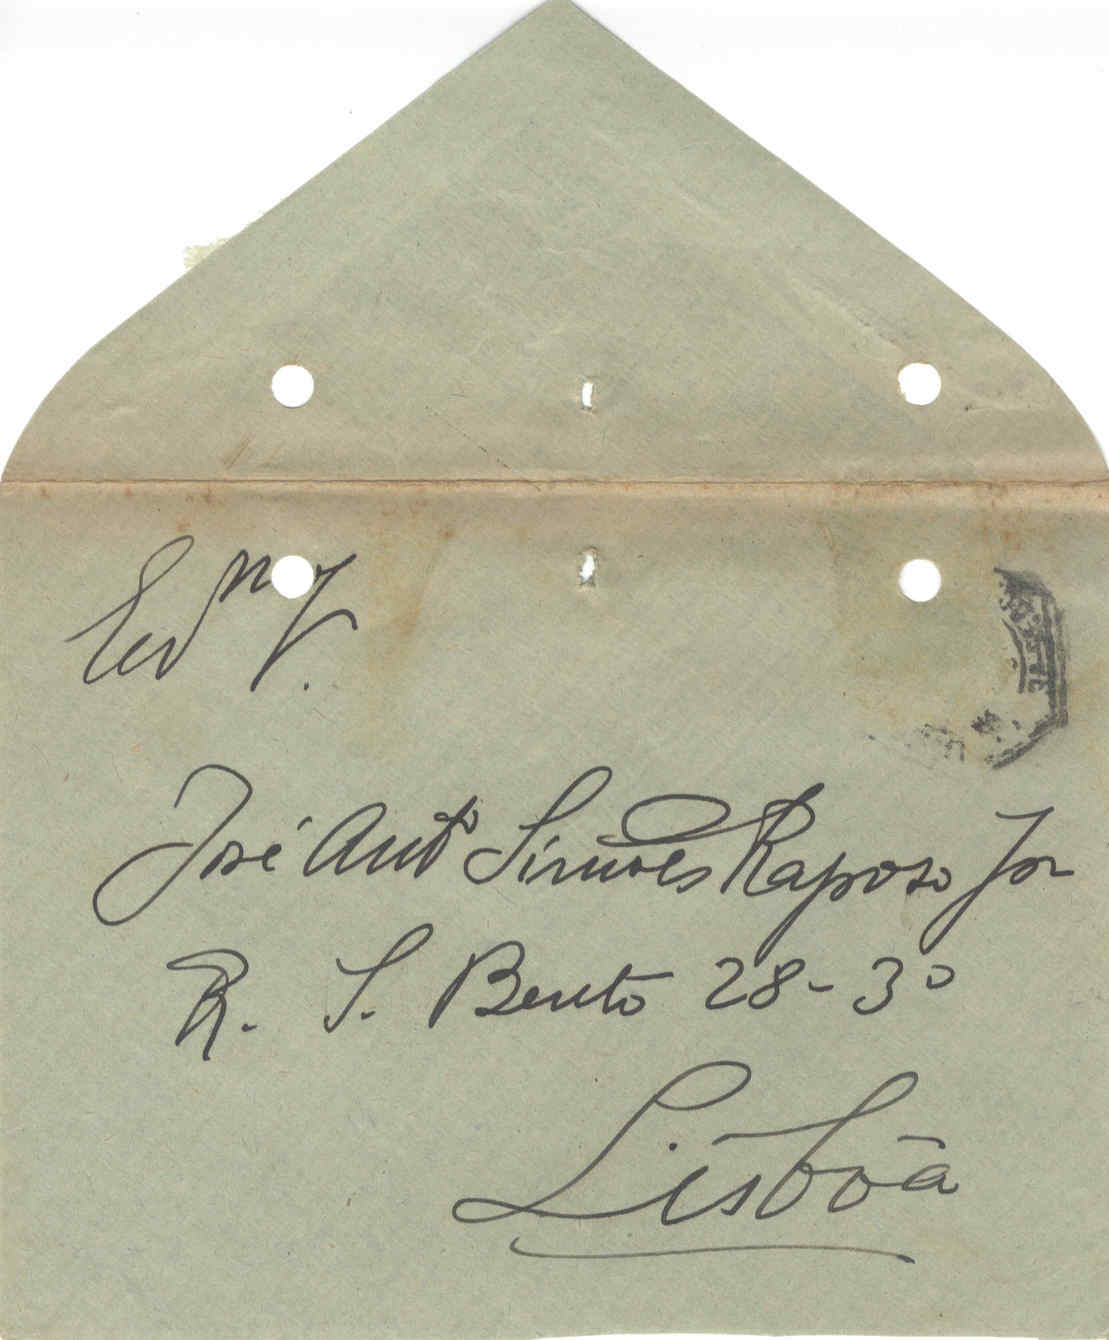 José Antº Simões Raposo Jor
R. S. Bento 28-3º
Lisbôa